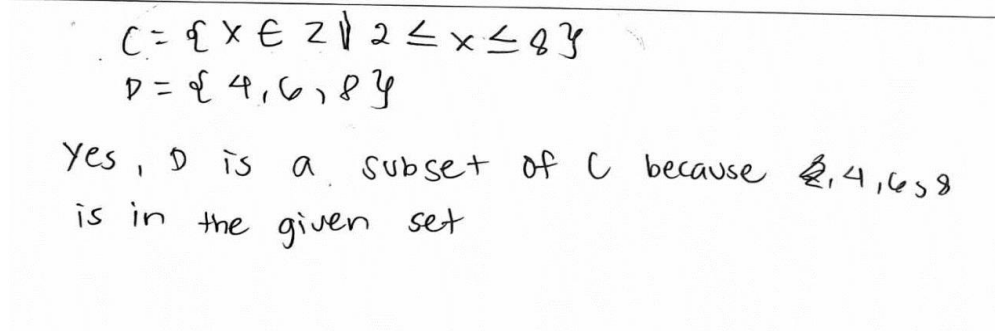 C = { x ∈ Z | 2 ≤ x ≤ 8 }
D = { 4, 6, 8 }
Yes, D is a subset of C because 4, 6, 8
is in the given set